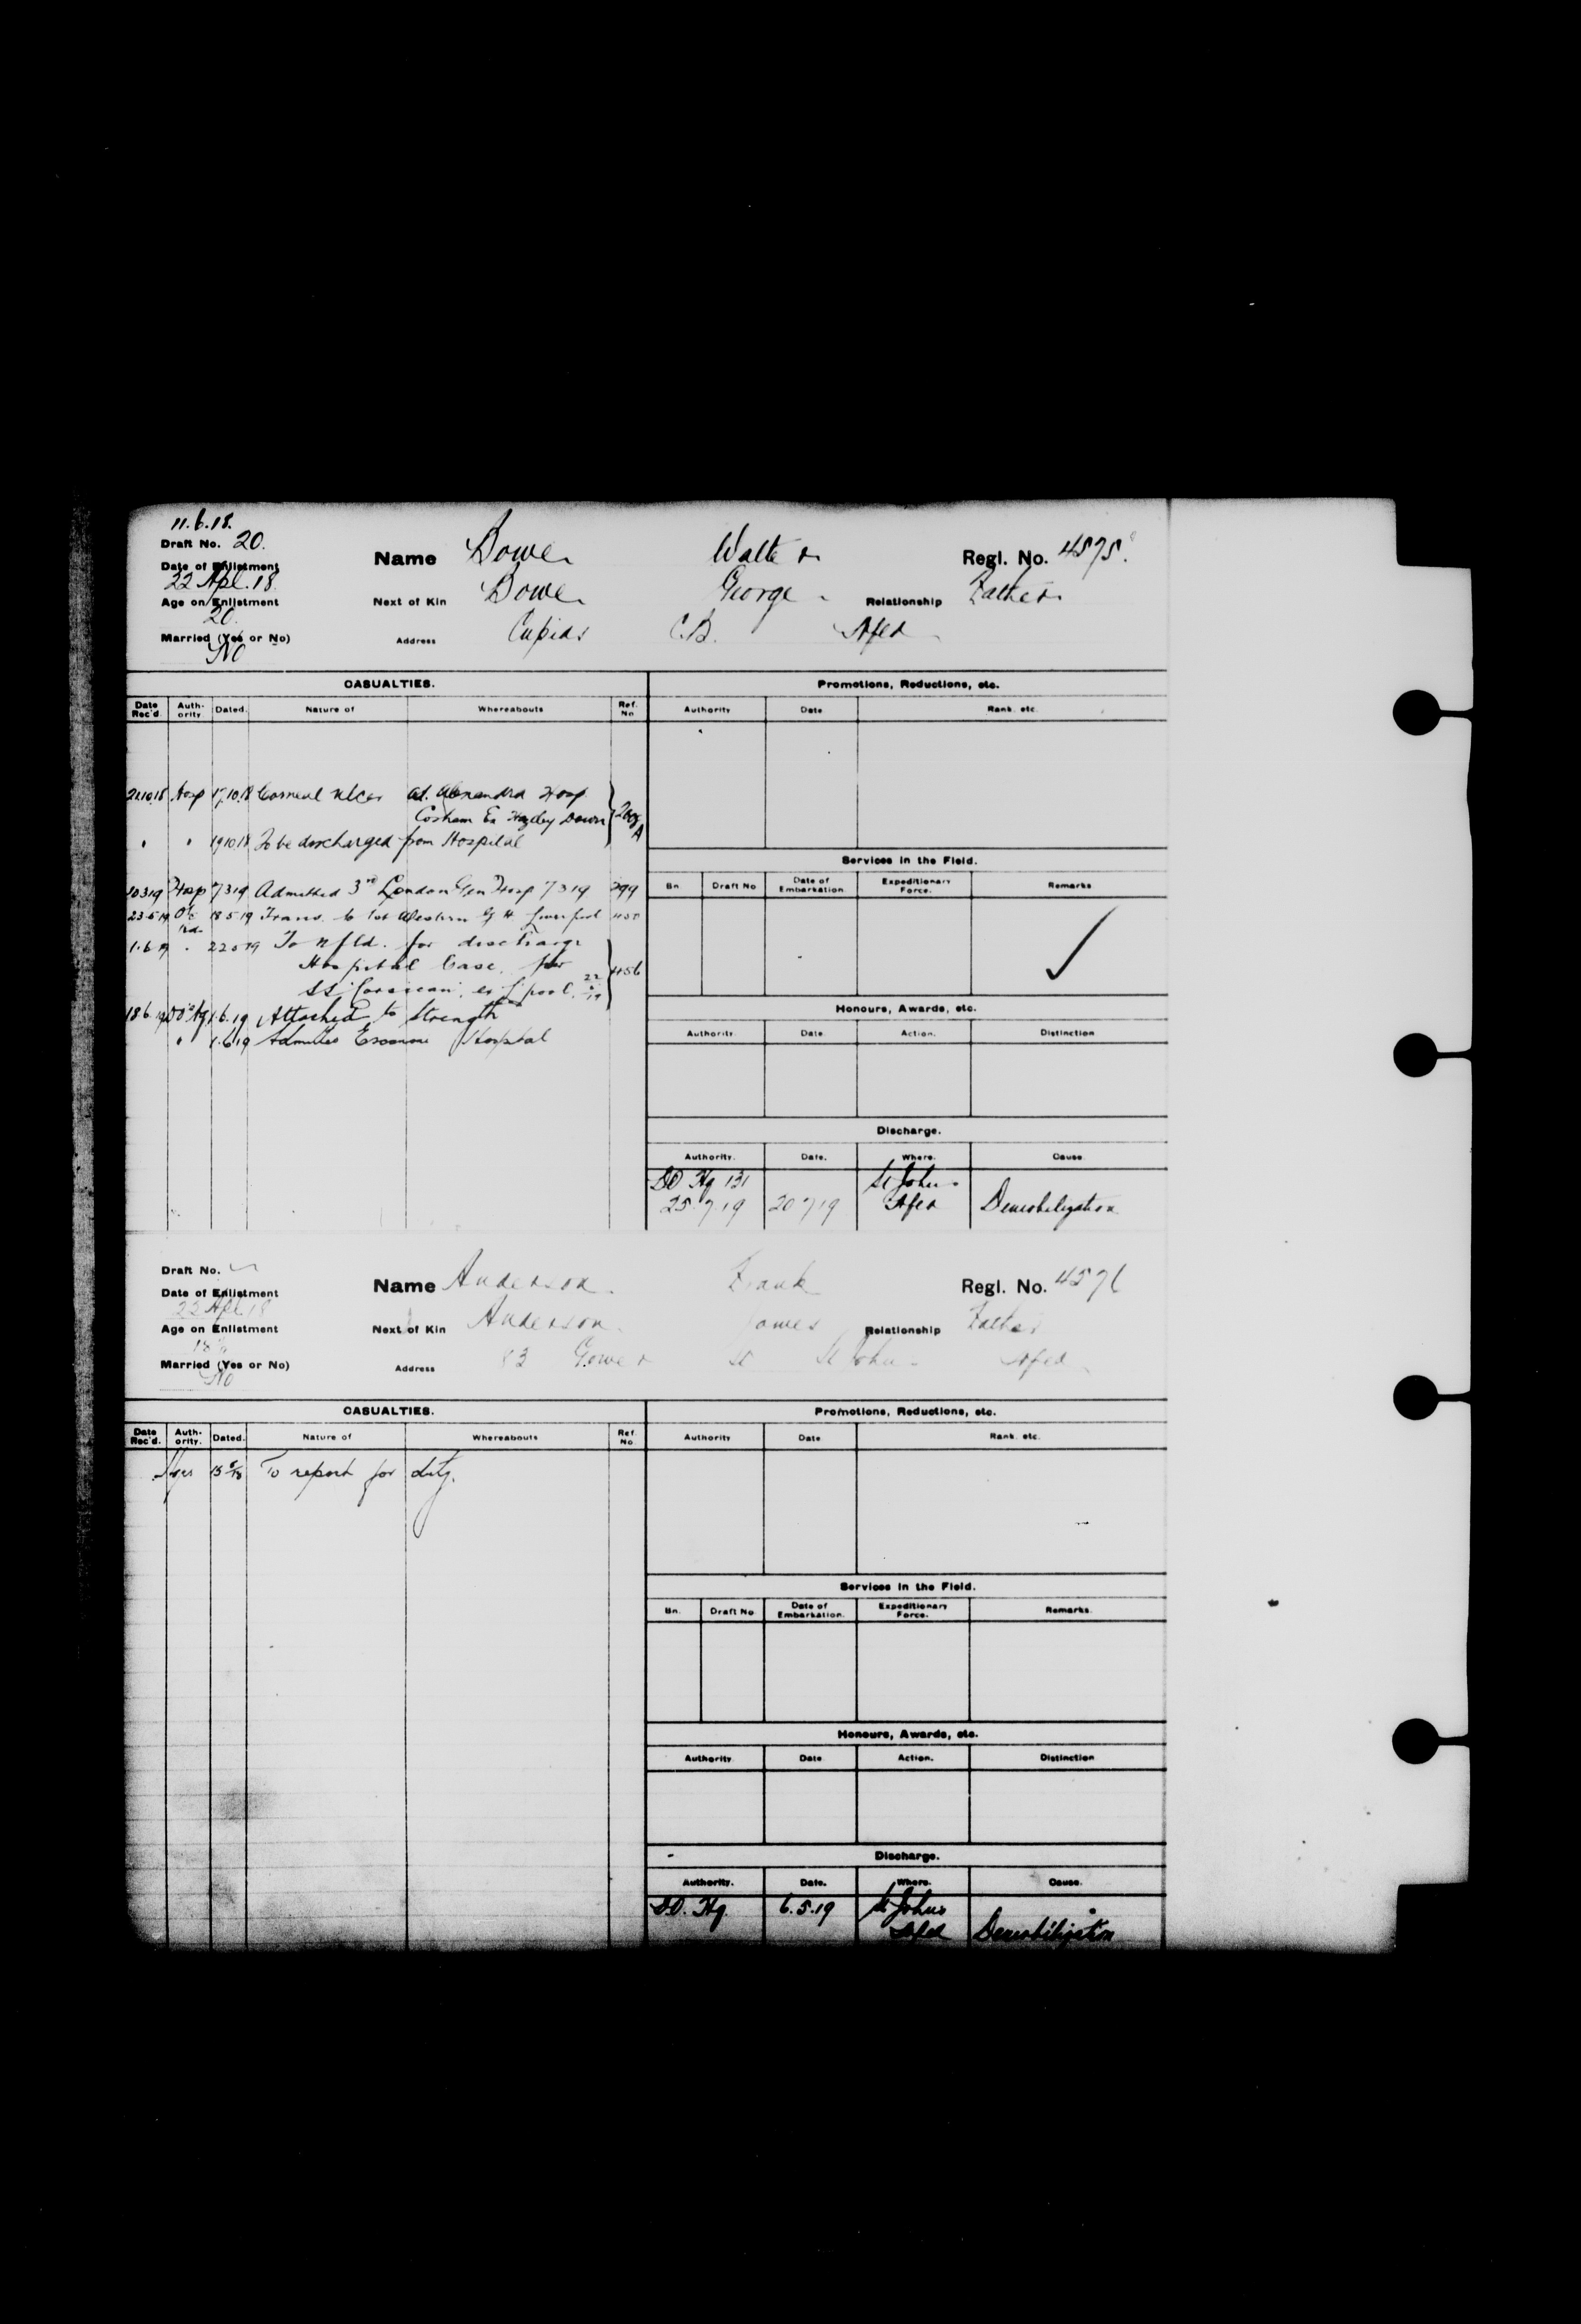 11.6.18.
Draft No. 20.
Name Bower Walter Regl. No. 4575.
Date of Enlistment
22 Apl. 18.
Next of Kin Bower George Relationship Father
Age on Enlistment
20.
Married (Yes or No) Address Cupids C.B. Nfld
No
CASUALTIES. Promotions, Reductions, etc.
Date Rec'd. Auth-ority. Dated. Nature of Whereabouts Ref. No Authority Date Rank. etc.
21.10.18 Hosp 17.10.18 Corneal Ulcer ad. Alexandra Hosp
Cosham Ex Hazley Down
" " 19.10.18 To be discharged from Hospital
Services in the Field.
Bn. Draft No Date of Embarkation. Expeditionary Force. Remarks
10.3.19 Hosp 7.3.19 Admitted 3rd London Gen Hosp 7.3.19 299
23.5.19 18.5.19 Trans. to 1st Western G H Liverpool
1.6.19 " 22.5.19 To Nfld. for discharge
Hospital Case. per 456
SS "Corsican", ex L'pool. 22.5.19
Honours, Awards, etc.
18.6.19 DO Hq 1.6.19 Attached to Strength
Authority. Date. Action. Distinction
" 1.6.19 Admitted Hospital
Discharge.
Authority. Date. Where. Cause
DO Hq 131 St Johns
25.7.19 20.7.19 Nfld Demobilization
Draft No.
Name Anderson Frank Regl. No. 4576
Date of Enlistment
22 Apl. 18
Next of Kin Anderson James Relationship Father
Age on Enlistment
18
Married (Yes or No) Address 83 Gower St St Johns Nfld
No
CASUALTIES. Promotions, Reductions, etc.
Date Rec'd. Auth-ority. Dated. Nature of Whereabouts Ref. No Authority Date Rank. etc.
To report for duty.
Services in the Field.
Bn. Draft No Date of Embarkation. Expeditionary Force. Remarks.
Honours, Awards, etc.
Authority. Date Action. Distinction
Discharge.
Authority. Date. Where. Cause.
D.O. Hq. 6.5.19 St Johns
Nfld Demobilization